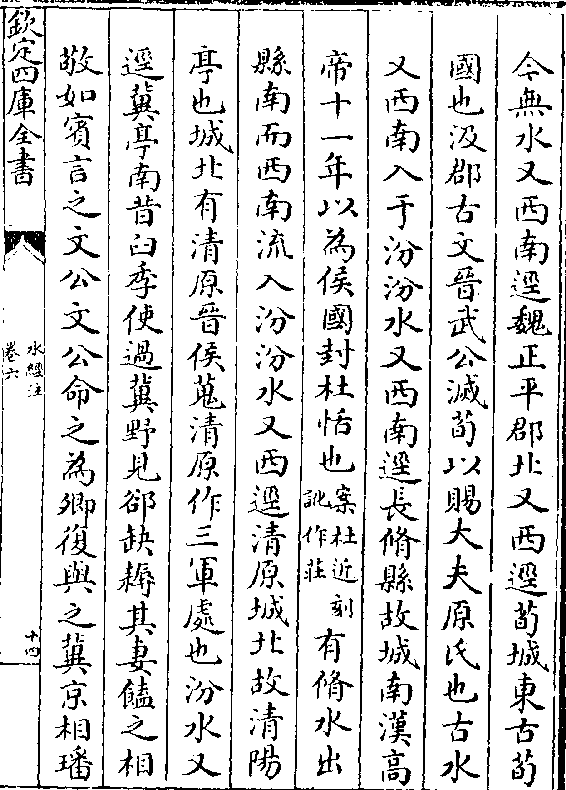 今無水又西南逕魏正平郡北又西逕荀城東古荀
國也汲郡古文晉武公滅荀以賜大夫原氏也古水
又西南入于汾汾水又西南逕長脩縣故城南漢高
帝十一年以為侯國封杜恬也案杜近刻訛作莊有脩水出
縣南而西南流入汾汾水又西逕清原城北故清陽
亭也城北有清原晉侯蒐清原作三軍處也汾水又
逕冀亭南昔臼季使過冀野見郤缺耨其妻饁之相
敬如賓言之文公文公命之為卿復與之冀京相璠
欽定四庫全書
水經注
卷六
十四